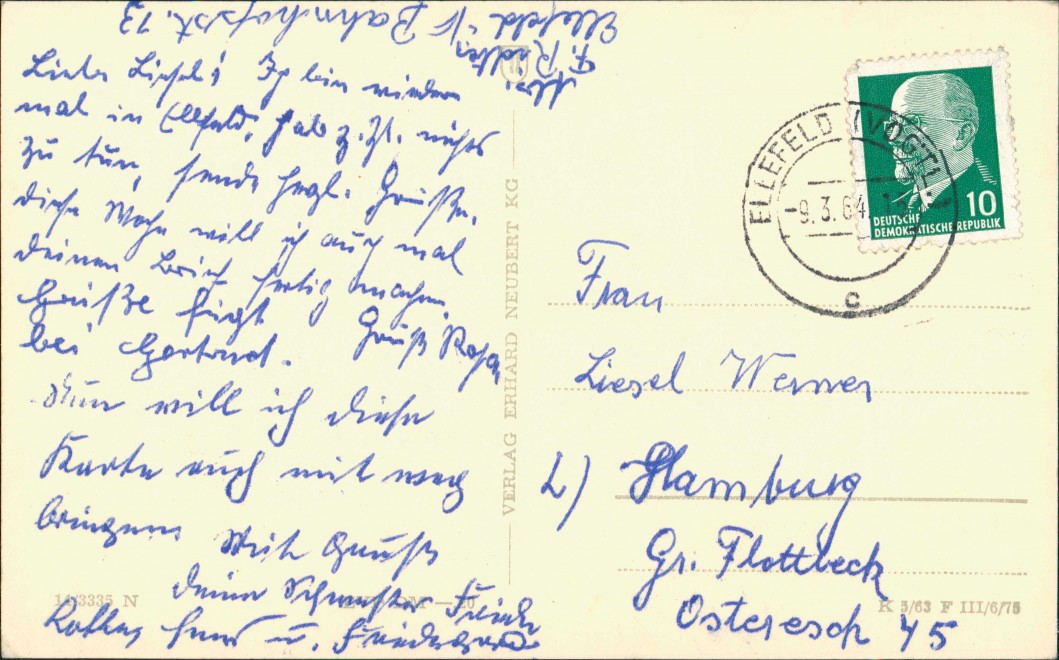 Abs.
F. Riedler
Ellefeld i/V Bahnhofstr. 13
Liebe Liesel! Ich bin wieder
mal in Ellefeld, hab z. Zt. nichts
zu tun, sende herzl. Grüße.
Diese Woche will ich auch mal
deinen Brief fertig machen.
Grüße
bei Gertrud. Gruß Rosa,
Nun will ich diese
Karte auch mit weg
bringen. Viele Grüße
deine Schwester Frieda
Lothar, Hans u. Friedegard
VERLAG ERHARD NEUBERT KG
14/3335 N
K 5/63 F III/6/75
ELLEFELD (VOGTL.)
-9.3.64
c
10
DEUTSCHE
DEMOKRATISCHE REPUBLIK
Frau
Liesel Werner
2) Hamburg
Gr. Flottbeck
Osteresch 45